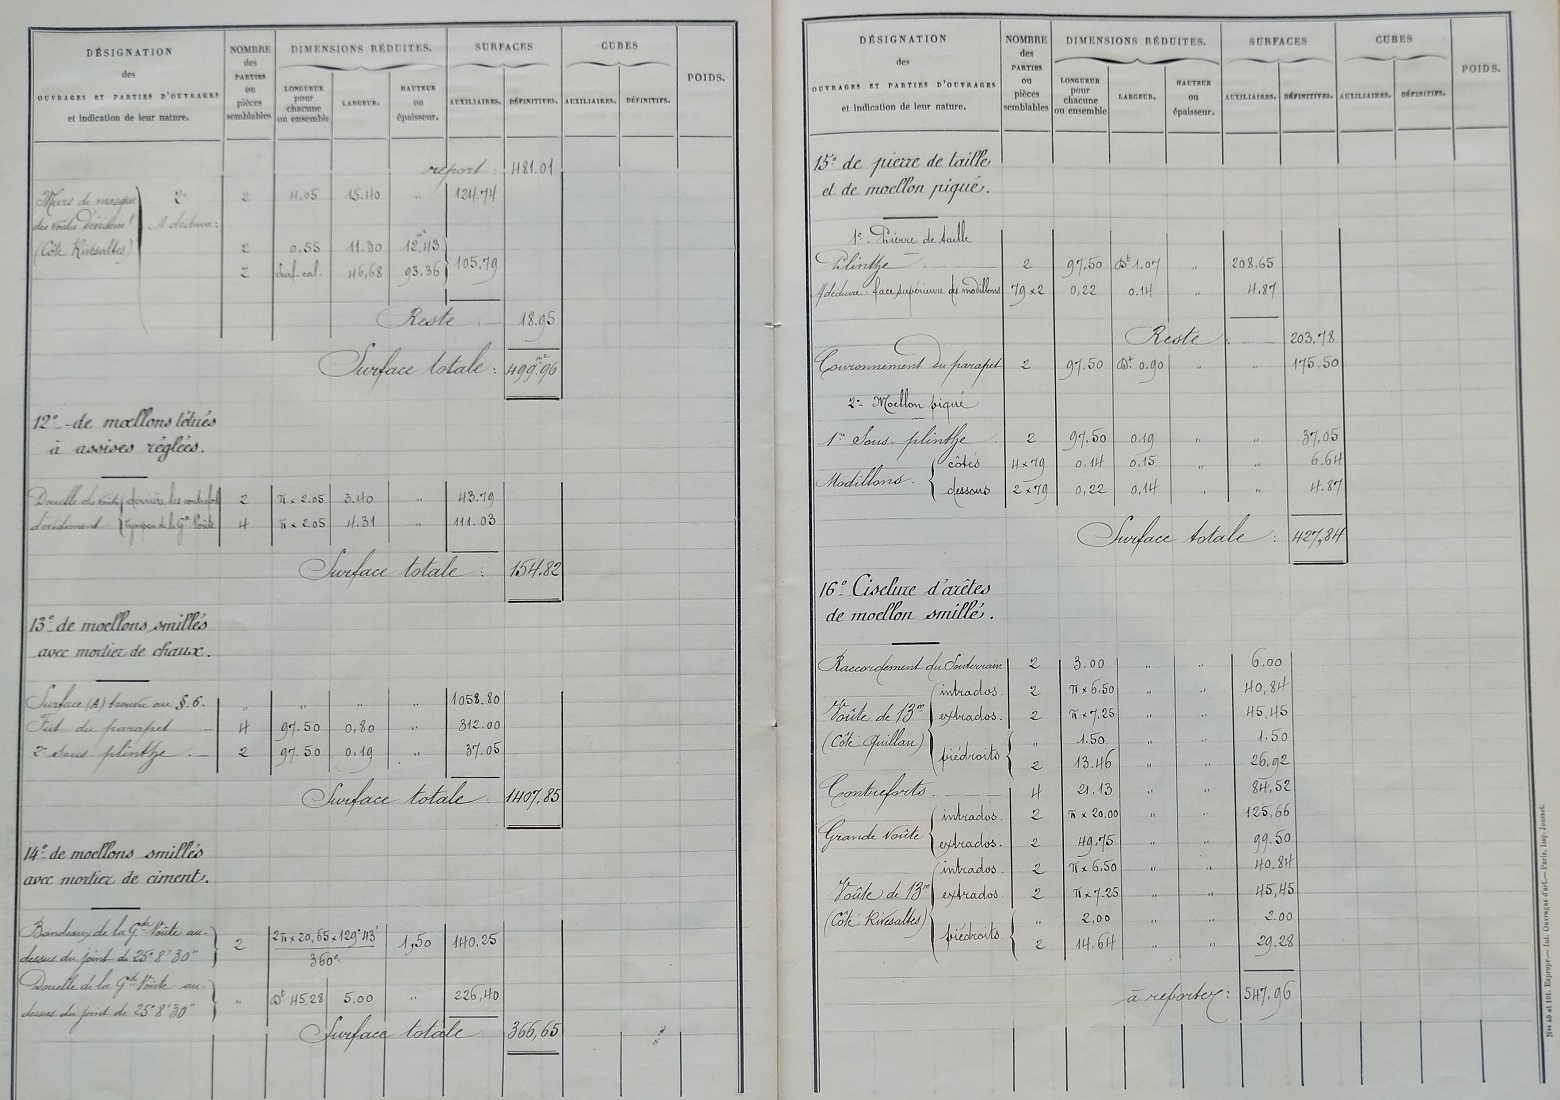 DÉSIGNATION
des
OUVRAGES ET PARTIES D'OUVRAGES
et indication de leur nature.
NOMBRE
des
PARTIES
ou
pièces
semblables
DIMENSIONS RÉDUITES.
LONGUEUR
pour
chacune
ou ensemble
LARGEUR.
HAUTEUR
ou
épaisseur.
SURFACES
AUXILIAIRES.
DÉFINITIVES.
CUBES
AUXILIAIRES.
DÉFINITIFS.
POIDS.
report : 481.01
Murs de masque 2° 2 4.05 15.40 " 124.74
des voûtes d'évidemt A déduire :
(Côté Rivesaltes) 2 0.55 11.30 12.43
2 Surf. cal. 46,68 93.36 105,79
Reste 18.95
Surface totale : 499.96
12° - de moellons têtués
à assises réglées.
Douelle des voûtes derrière les contreforts 2 π x 2.05 3.40 " 43.79
d'évidement tympans de la Gde Voûte 4 π x 2.05 4.31 " 111.03
Surface totale : 154,82
13° de moellons smillés
avec mortier de chaux.
Surface (A) trouvée au §. 6. " " " " 1058.80
Fût du parapet 4 97.50 0,80 " 312.00
2e Sous-plinthe 2 97.50 0.19 " 37.05
Surface totale : 1407,85
14° de moellons smillés
avec mortier de ciment.
Bandeaux de la Gde Voûte au-
dessus du joint de 25° 8' 30" 2 2π x 20,65 x 129° 43' / 360° 1,50 140,25
Douelle de la Gde Voûte au-
dessus du joint de 25° 8' 30" " Dt 45.28 5.00 " 226,40
Surface totale 366,65
DÉSIGNATION
des
OUVRAGES ET PARTIES D'OUVRAGES
et indication de leur nature.
NOMBRE
des
PARTIES
ou
pièces
semblables
DIMENSIONS RÉDUITES.
LONGUEUR
pour
chacune
ou ensemble
LARGEUR.
HAUTEUR
ou
épaisseur.
SURFACES
AUXILIAIRES.
DÉFINITIVES.
CUBES
AUXILIAIRES.
DÉFINITIFS.
POIDS.
15° de pierre de taille
et de moellon piqué.
1° - Pierre de taille
Plinthe 2 97,50 Dt 1.07 " 208.65
A déduire : face supérieure des modillons 79 x 2 0,22 0.14 " 4.87
Reste : 203,78
Couronnement du parapet 2 97.50 Dt 0.90 " " 175.50
2° Moellon piqué
1re Sous-plinthe 2 97.50 0.19 " " 37.05
Modillons. côtés 4 x 79 0.14 0,15 " " 6.64
dessous 2 x 79 0,22 0,14 " " 4.87
Surface totale : 427,84
16° Ciselure d'arêtes
de moellon smillé.
Raccordement du Souterrain 2 3.00 " " 6.00
Voûte de 13m intrados. 2 π x 6.50 " " 40,84
extrados. 2 π x 7,25 " " 45,45
(Côté Quillan) piédroits " 1.50 " " 1.50
2 13.46 " " 26,92
Contreforts 4 21.13 " " 84,52
Grande Voûte intrados. 2 π x 20,00 " " 125,66
extrados. 2 49.75 " " 99.50
Voûte de 13m intrados. 2 π x 6.50 " " 40.84
extrados. 2 π x 7.25 " " 45,45
(Côté Rivesaltes) piédroits. " 2.00 " " 2.00
2 14.64 " " 29.28
à reporter : 547,96
Nos 40 et 101. Expropr. — Int. Ouvrages d'art. — Paris, Imp. Jousset.